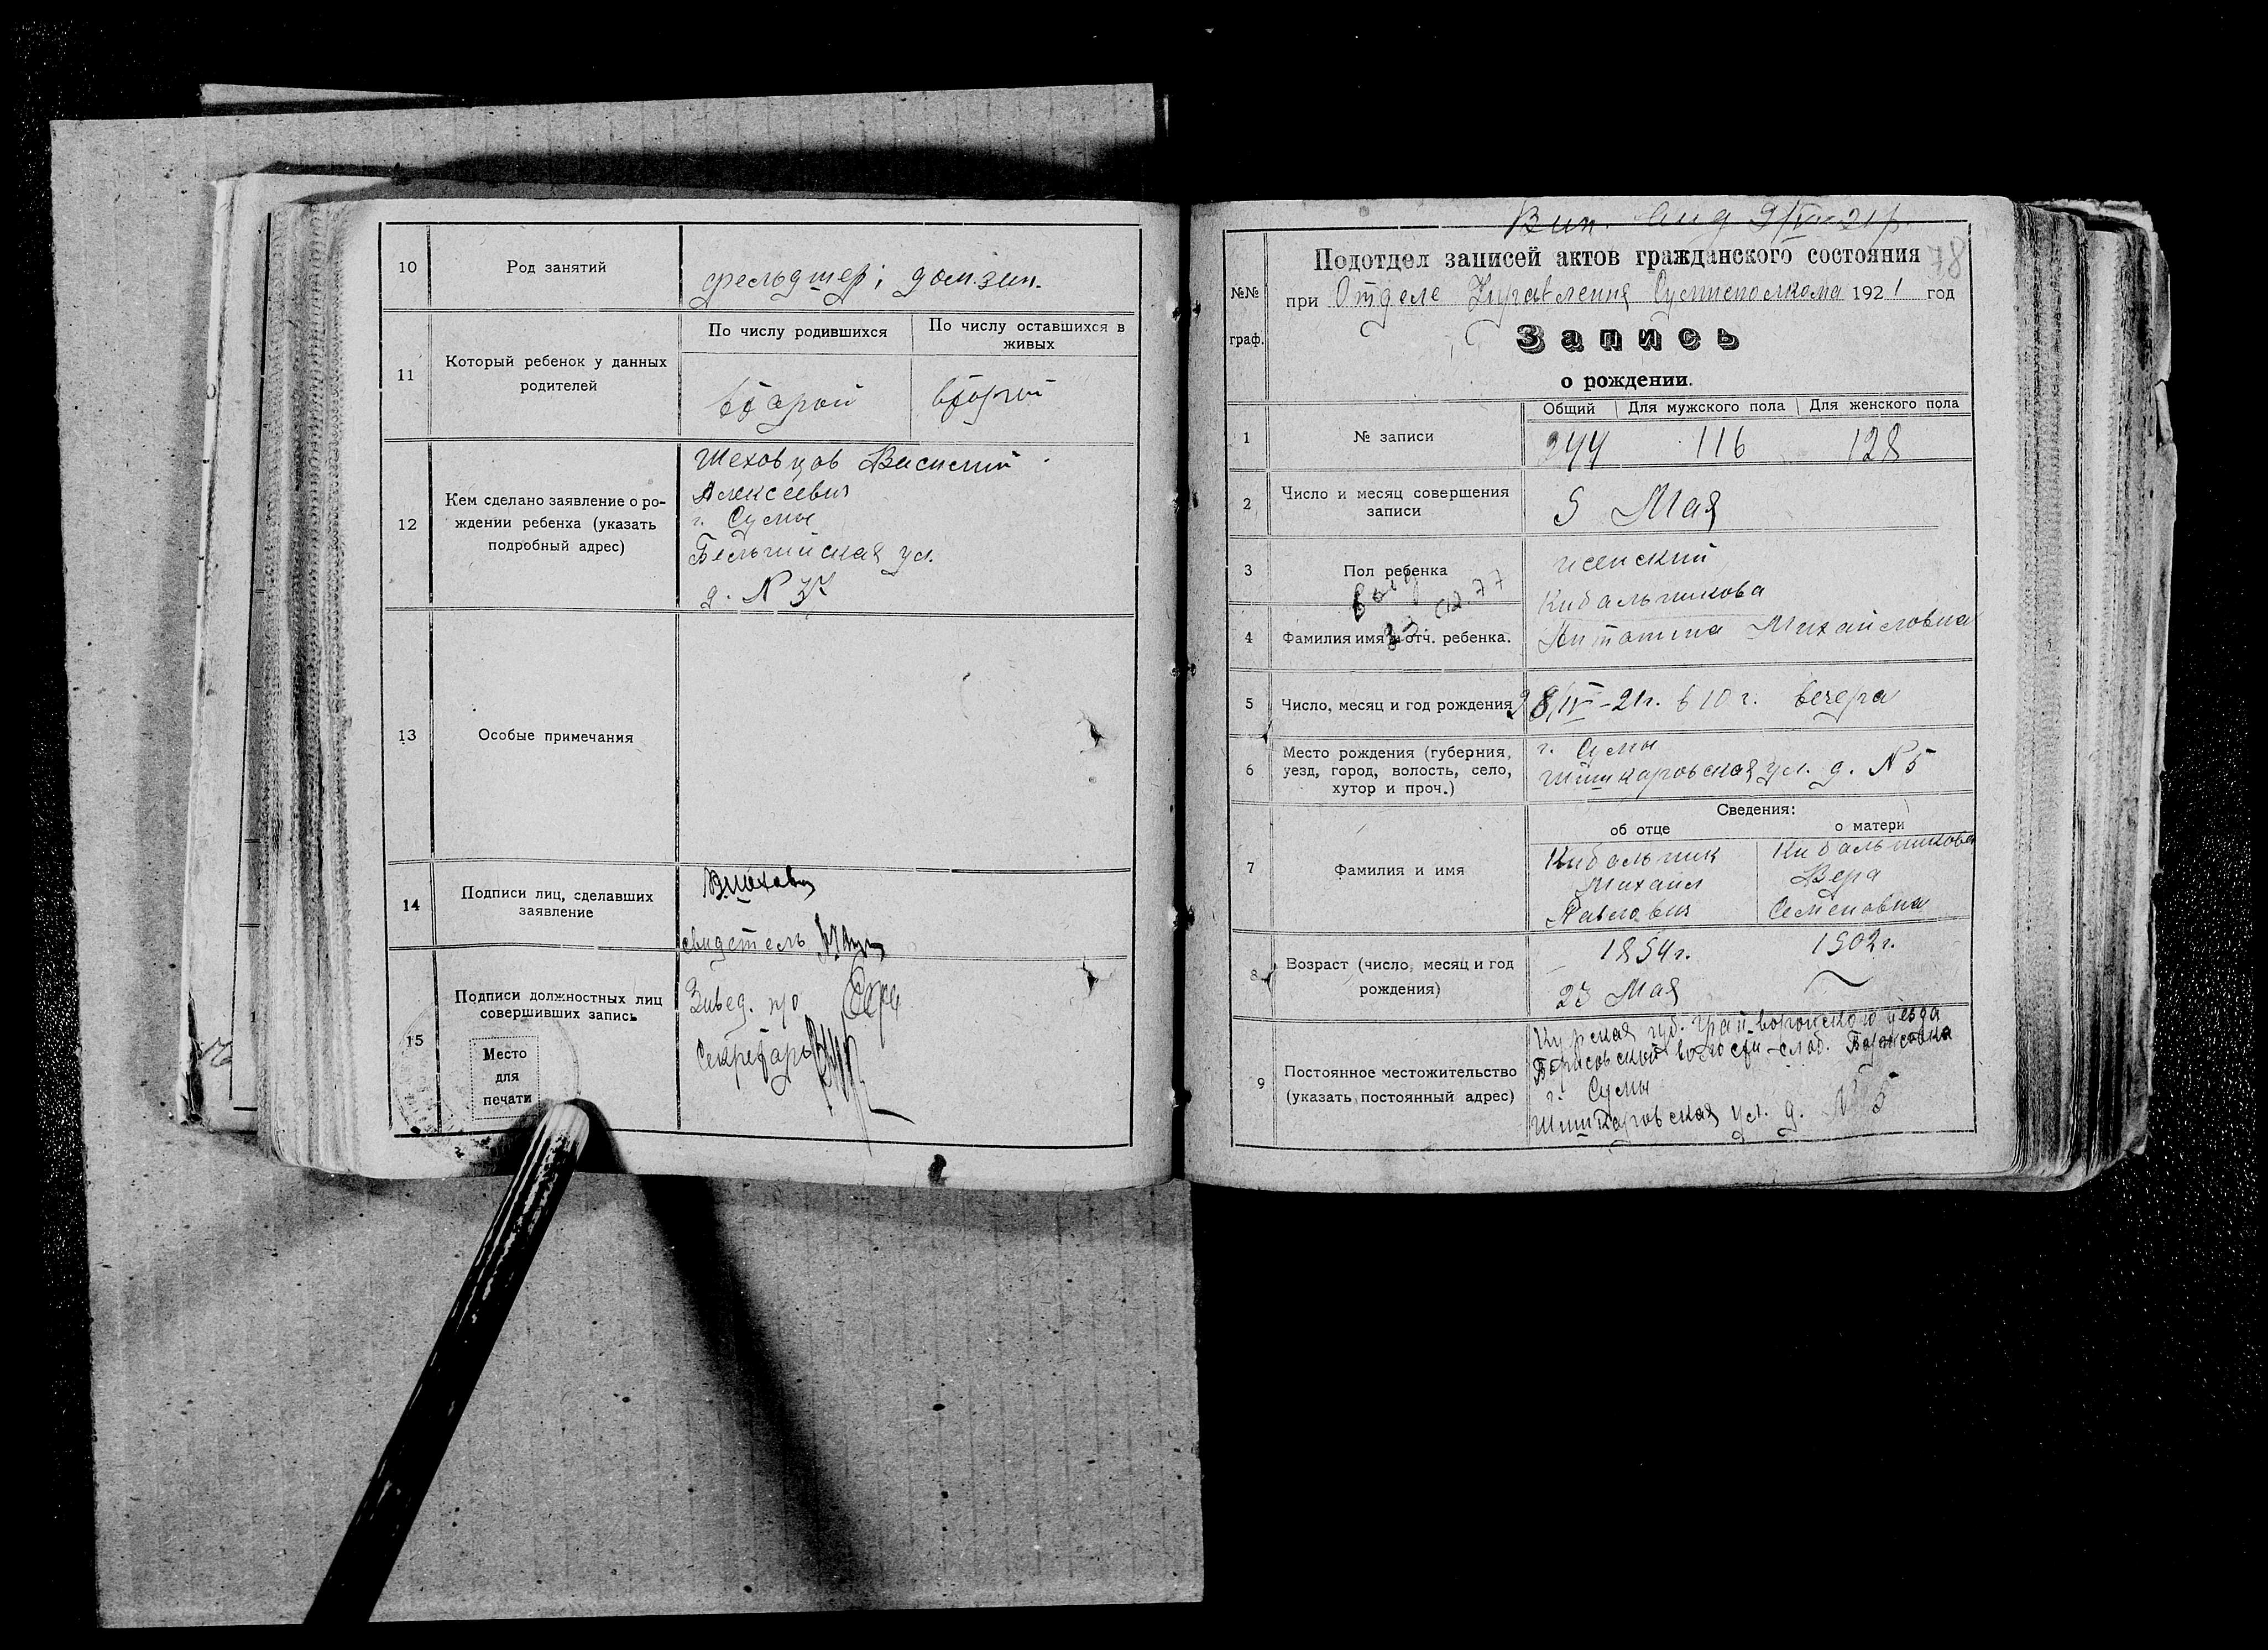 10
Род занятий
фельдшер; дом.зан.
11
Который ребенок у данных
родителей
По числу родившихся
По числу оставшихся в
живых
второй
второй
12
Кем сделано заявление о ро-
ждении ребенка (указать
подробный адрес)
Шеховцов Василий
Алексеевич
г. Сумы
Бельгийская ул.
д. N 37
13
Особые примечания
14
Подписи лиц, сделавших
заявление
свидетель
15
Подписи должностных лиц
совершивших запись
Место
для
печати
Завед. п/о
Секретарь
78
Подотдел записей актов гражданского состояния
№№
граф.
при Отделе Управления Сумисполкома 1921 год
Запись
о рождении.
Общий Для мужского пола Для женского пола
1
№ записи
244 116 128
2
Число и месяц совершения
записи
5 Мая
3
Пол ребенка
женский
4
Фамилия имя и отч. ребенка.
Кибальникова
Антонина Михайловна
5
Число, месяц и год рождения
28/IV-21г. в 10 г. вечера
6
Место рождения (губерния,
уезд, город, волость, село,
хутор и проч.)
г. Сумы
Шишкаровская ул. д. N 5
Сведения:
об отце
о матери
7
Фамилия и имя
Кибальник
Михаил
Павлович
Кибальникова
Вера
Семеновна
8
Возраст (число, месяц и год
рождения)
1894г.
23 Мая
1902г.
9
Постоянное местожительство
(указать постоянный адрес)
Курская губ. Грайворонского уезда
Борисовской волости слоб. Борисовка
г. Сумы
Шишкаровская ул. д. N 5